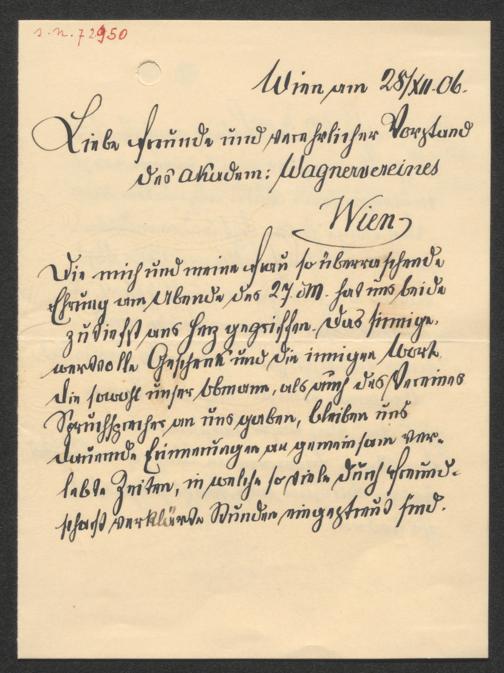 I. N. 72950
Wien am 28/XII. 06.
Liebe Freunde und verehrlicher Vorstand
des akadem: Wagnervereines
Wien
Die mich und meine Frau so überraschende
Ehrung am Abende des 27. d M. hat uns beide
zutiefst ans Herz gegriffen. Das sinnige,
wertvolle Geschenk und die innigen Worte
die sowohl unser Obmann, als auch des Vereines
Spruchsprecher an uns gaben, bleiben uns
dauernde Erinnerungen an gemeinsam ver-
lebte Zeiten, in welche so viele durch Freund-
schaft verklärte Stunden eingestreut sind.